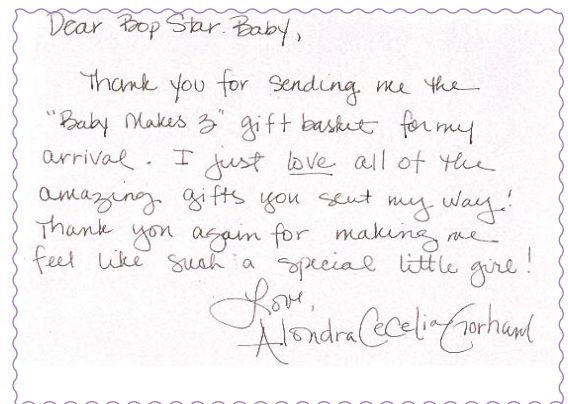 Dear Bop Star Baby,
Thank you for sending me the
"Baby Makes 3" gift basket for my
arrival. I just love all of the
amazing gifts you sent my way!
Thank you again for making me
feel like such a special little girl!
Love,
Alondra Cecelia Gorham